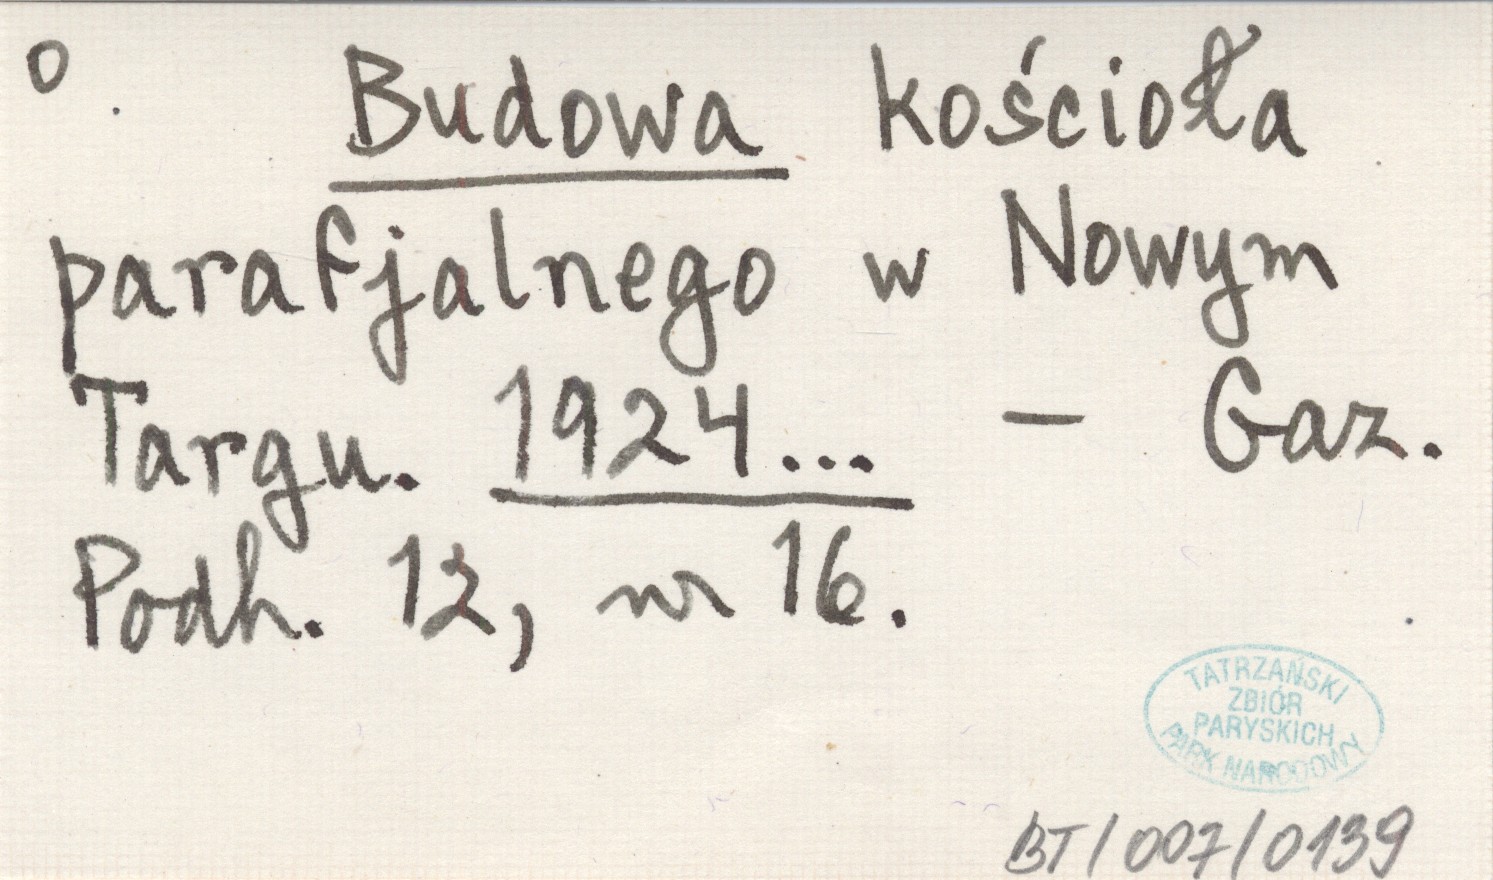 o
Budowa kościoła
parafjalnego w Nowym
Targu. 1924... – Gaz.
Podh. 12, nr 16.
TATRZAŃSKI
ZBIÓR
PARYSKICH
PARK NARODOWY
BT/007/0139